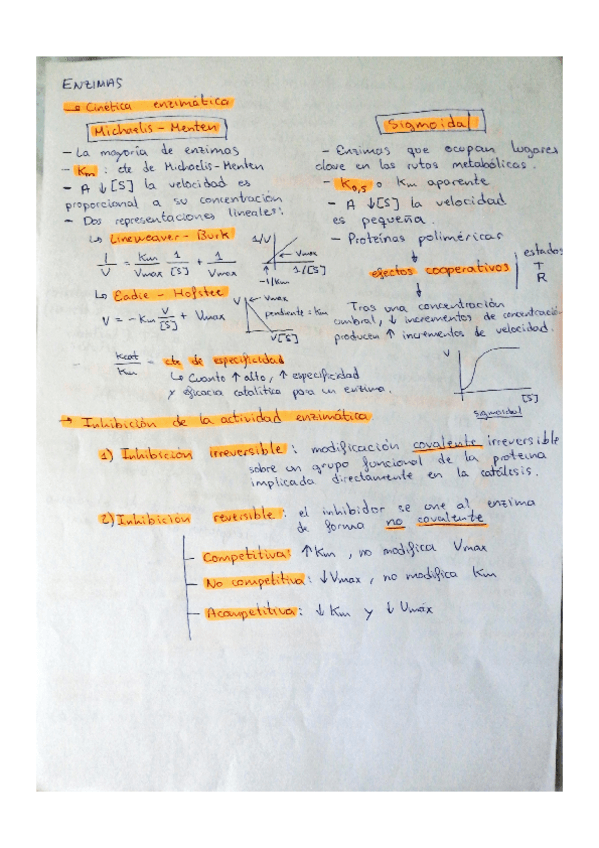 ENZIMAS
→ Cinética enzimática
Michaelis - Menten
- La mayoría de enzimas
- Km : cte de Michaelis-Menten
- A ↓[S] la velocidad es
proporcional a su concentración
- Dos representaciones lineales:
↳ Lineweaver - Burk
1/V = Km/Vmax 1/[S] + 1/Vmax
1/V
Vmax
1/[S]
-1/Km
↳ Eadie - Hofstee
V = -Km V/[S] + Vmax
V
Vmax
pendiente = Km
V/[S]
Kcat/Km = cte de especificidad
↳ Cuanto ↑ alto, ↑ especificidad
y eficacia catalítica para un enzima.
Sigmoidal
- Enzimas que ocupan lugares
clave en las rutas metabólicas.
- K0,5 o Km aparente
- A ↓[S] la velocidad
es pequeña.
- Proteínas poliméricas
↓
efectos cooperativos
estados
T
R
↓
Tras una concentración
umbral, ↓ incrementos de concentración
producen ↑ incrementos de velocidad.
V
[S]
sigmoidal
→ Inhibición de la actividad enzimática
1) Inhibición irreversible : modificación covalente irreversible
sobre un grupo funcional de la proteína
implicada directamente en la catálisis.
2) Inhibición reversible : el inhibidor se une al enzima
de forma no covalente
- Competitiva: ↑Km , no modifica Vmax
- No competitiva : ↓Vmax , no modifica Km
- Acompetitiva : ↓ Km y ↓ Vmáx